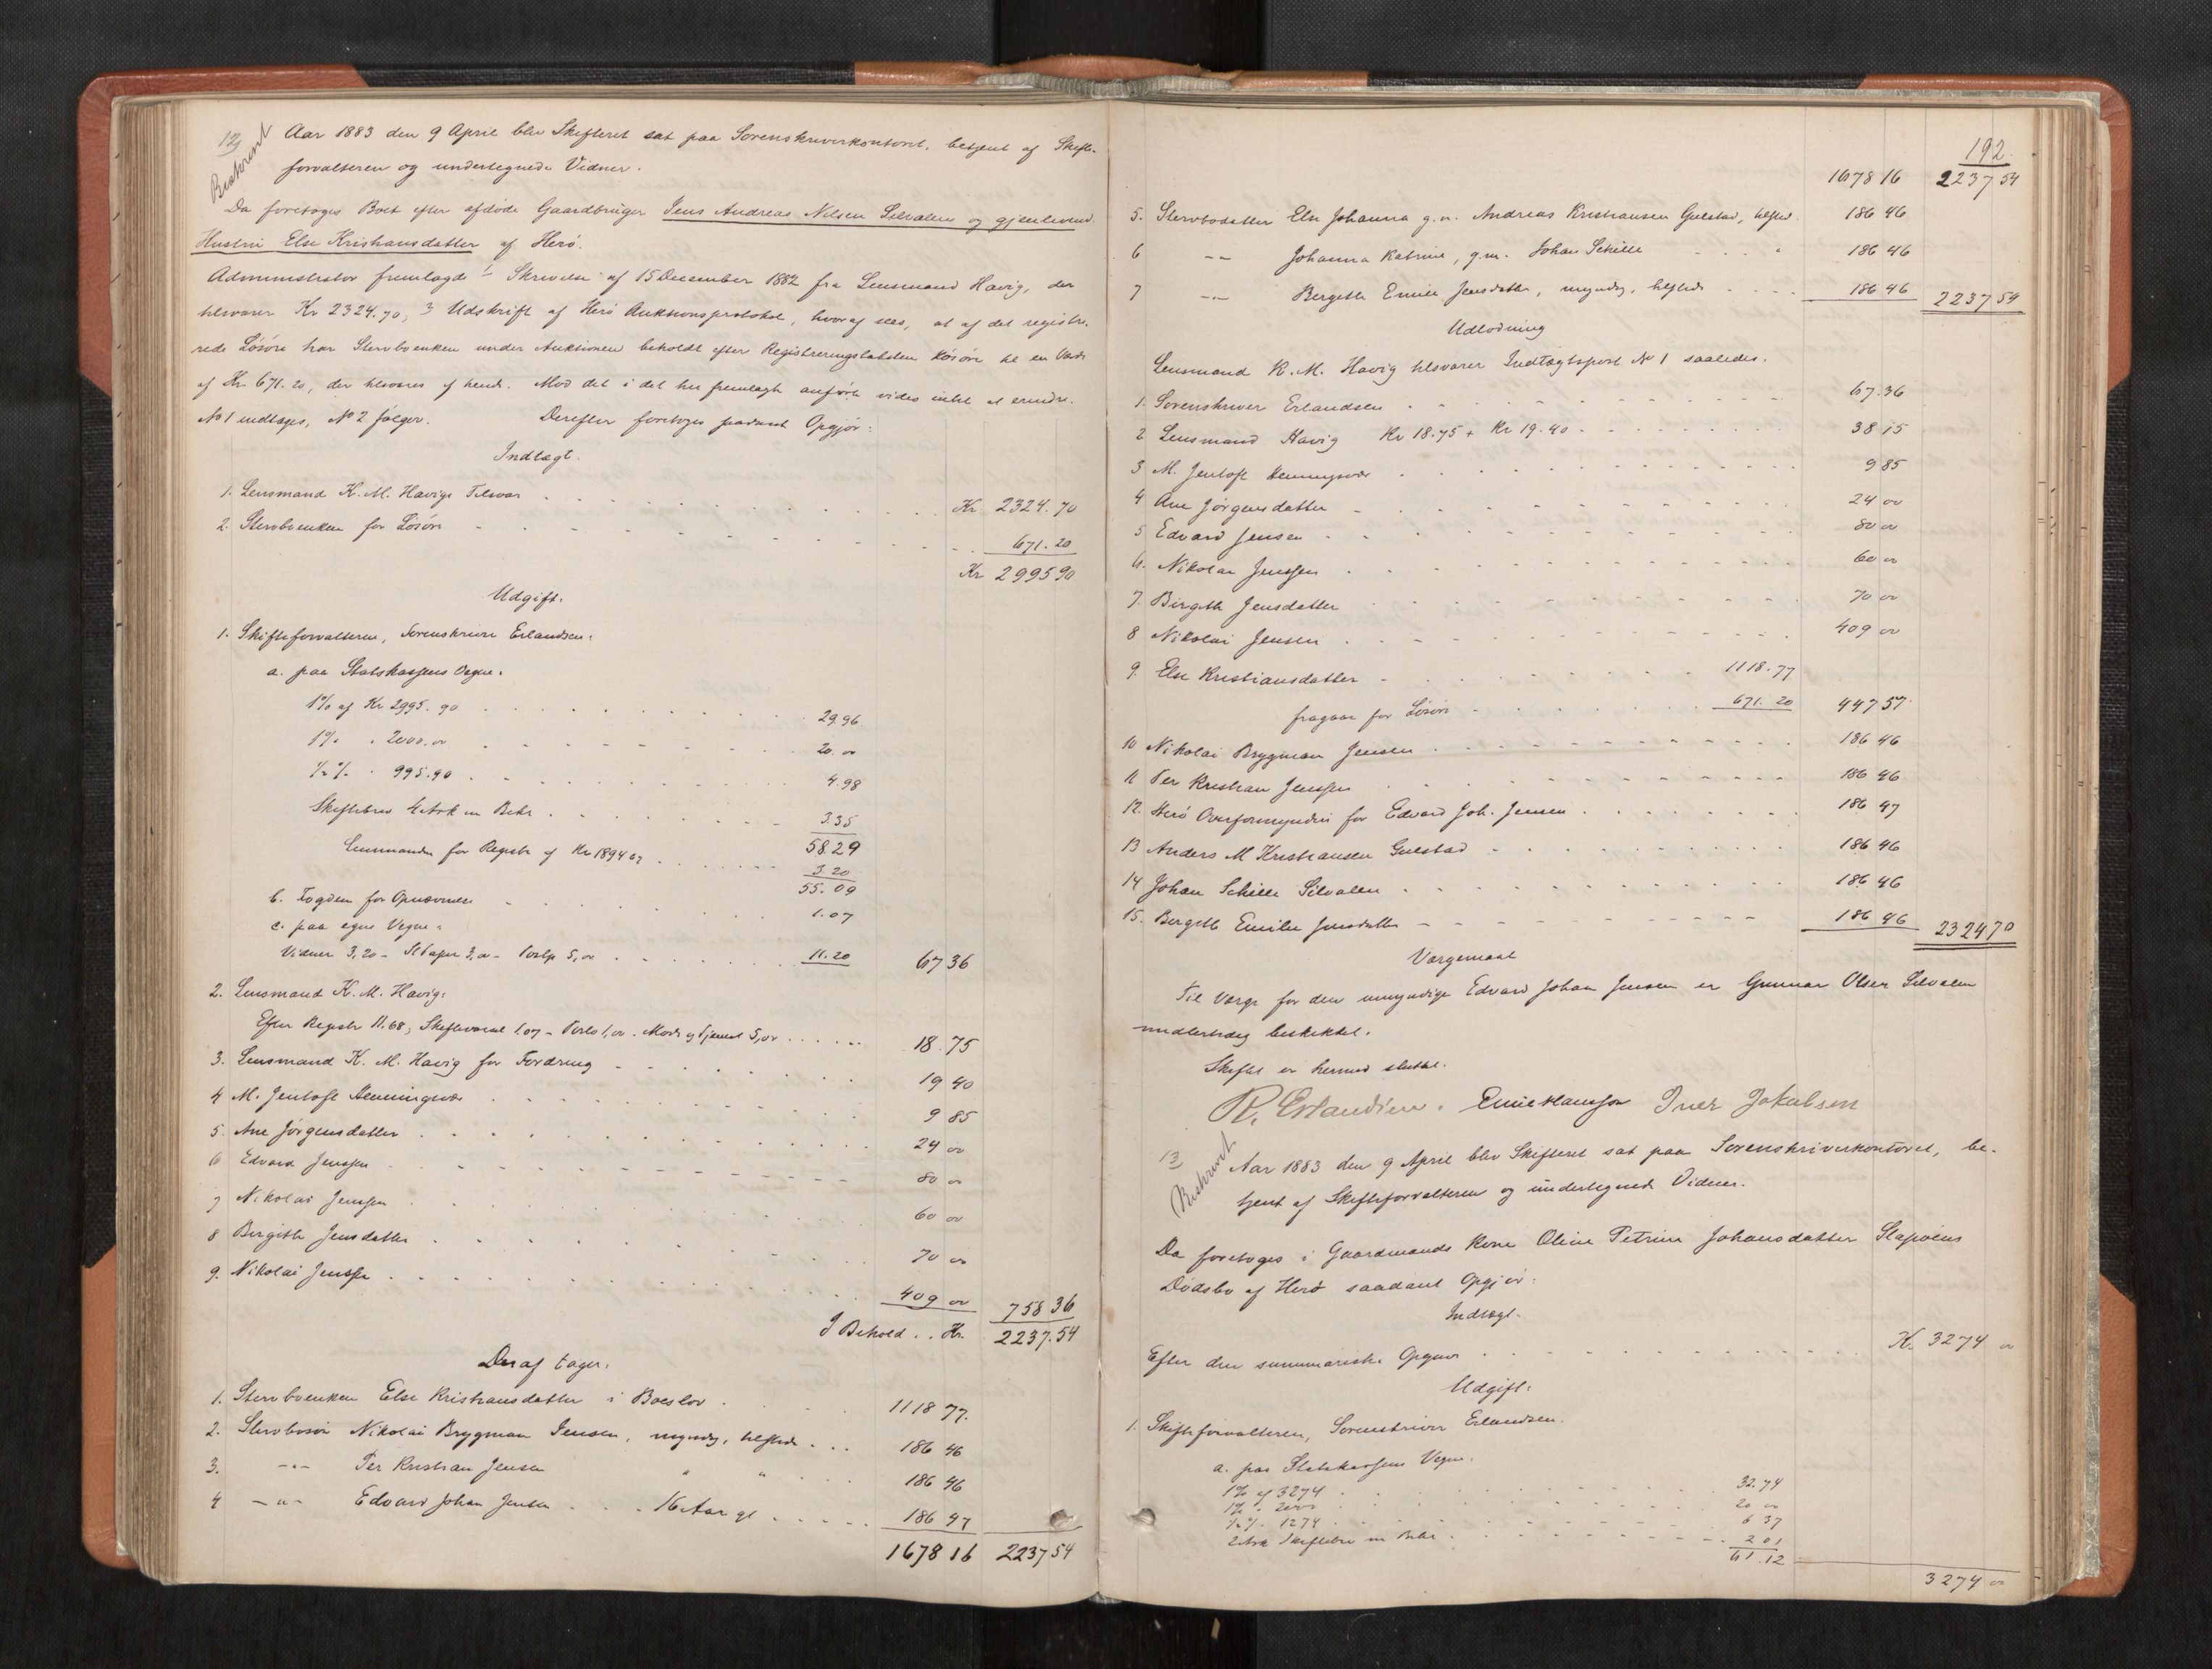 12
Beskrevet
Aar 1883 den 9 April blev Skifteret sat paa Sorenskriverkontoret, betjent af Skifte-
forvalteren og undertegnede Vidner.
Da foretoges Boet efter afdøde Gaardbruger Jens Andreas Nilsen Silvalen og gjenlevend.
Hustru Else Kristiansdatter af Herø.
Administrator fremlagde 1 Skrivelse af 15 December 1882 fra Lensmand Havig, der
tilsvarer Kr 2324.70, Udskrift af Herø Auktionsprotokol, hvoraf sees, at af det registre-
rede Løsøre har Stervboenken under Auktionen beholdt efter Registreringstaksten Løsøre til en Værdi
af Kr. 671.20, der tilsvares af hende. Mod det i det her fremlagte anførte vides intet at erindre.
No 1 indtages, No 2 følger. Derefter foretoges saadant Opgjør:
Indtægt.
1. Lensmand K. M. Havigs Tilsvar . . . Kr 2324.70
2. Stervboenken for Løsøre - - - 671.20
Kr 2995 90
Udgift:
1. Skifteforvalteren, Sorenskriver Erlandsen:
a. paa Statskassens Vegne:
1% af Kr 2995.90 . . . 29.96
1% " 2000.00 . . . 20.00
½% " 995.90 . . . 4.98
Skiftebrev 4 Ark m Bekr . . . 3.35
58 29
Lensmanden for Registr af Kr 1894 67 . . . 3.20
55.09
b. Fogden for Opnævnelse . . . 1.07
c. paa egne Vegne:
Vidner 3,20 - 3,00 - 5,00 . . . 11.20 67 36
2. Lensmand K. M. Havig:
Efter Registr 11.68, 1.07 - 1,00 - 5,00 . . . 18.75
3. Lensmand K. M. Havig for Fordring . . . 19 40
4 M. Jentoft Henningsvær . . . 9 85
5. Ane Jørgensdatter . . . 24 00
6 Edvard Jenssen . . . 80 00
7 Nikolai Jenssen . . . 60 00
8 Birgithe Jensdatter . . . 70 00
9. Nikolai Jenssen . . . 409 00 758 36
I Behold . . Kr. 2237.54
Deraf tager:
1. Stervboenken Else Kristiansdatter i Boeslod . . . 1118 77.
2. Stervbosøn Nikolai Brygman Jensen, myndig, tilstede . . . 186 46
3. -"- Per Kristian Jensen " " . . 186 46
4 -"- Edvard Johan Jensen . . . 16 Aar gl . . . 186 47
1678 16 2237 54
192.
1678 16 2237 54
5. Stervbodatter Else Johanna g.m. Andreas Kristiansen Gulstad, tilsted. 186 46
6 -"- Johanna Katrine, g.m. Johan Schille . . . " 186 46
7 -"- Bergithe Emilie Jensdatter, myndig, tilstede . . . 186 46 2237 54
Udlodning
Lensmand K. M. Havig tilsvarer Indtægtspost No 1 saaledes.
1. Sorenskriver Erlandsen . . . 67.36
2 Lensmand Havig Kr 18.75 + Kr 19.40 . . . 38 15
3 M. Jentoft Henningsvær . . . 9 85
4 Ane Jørgensdatter . . . 24 00
5 Edvard Jensen . . . 80 00
6. Nikolai Jenssen . . . 60 00
7. Birgithe Jensdatter . . . 70 00
8 Nikolai Jensen . . . 409 00
9. Else Kristiansdatter - . . . 1118.77
fragaar for Løsøre . . . 671.20 447 57
10 Nikolai Brygman Jensen . . . 186 46
11 Per Kristian Jenssen . . . 186 46
12. Herø Overformynderi for Edvard Joh. Jensen . . . 186 47
13 Anders M Kristiansen Gulstad . . . 186 46
14 Johan Schille Silvalen . . . 186 46
15. Bergithe Emilie Jensdatter - - - 186 46 2324 70
Værgemaal
Til Værge for den umyndige Edvard Johan Jensen er Gunnar Olsen Silvalen
midlertidig beskikket.
Skiftet er hermed sluttet.
R. Erlandsen. Emil Hansson Iver Jakobsen
13
Beskrevet
Aar 1883 den 9 April blev Skifteret sat paa Sorenskriverkontoret, be-
tjent af Skifteforvalteren og undertegnede Vidner.
Da foretoges i Gaardmands Kone Oline Petrine Johansdatter Slapøens
Dødsbo af Herø saadant Opgjør:
Indtægt.
Efter den summariske Opgave . . . K. 3274 00
Udgift:
1. Skifteforvalteren, Sorenskriver Erlandsen.
a. paa Statskassens Vegne.
1% af 3274 . . . 32.74
1% " 2000 . . . 20 00
½% " 1274 . . . 6 37
2 Ark Skiftebr m Bekr . . . 2 01
61.12
3274 00